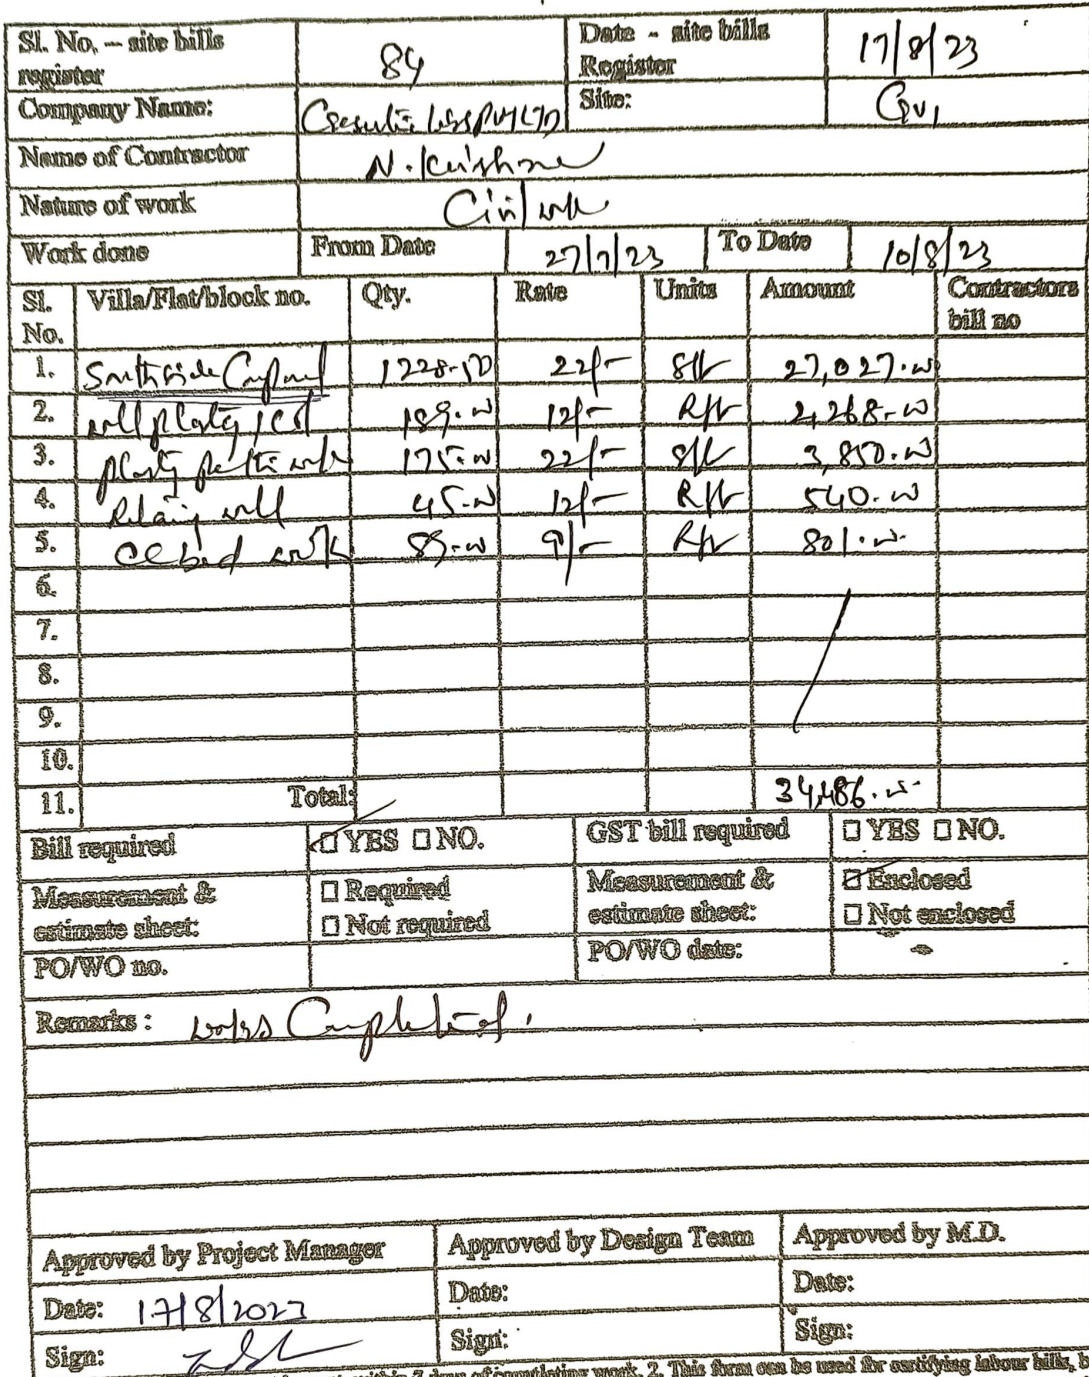 Sl. No. – site bills register 84 Date - site bills Register 17/8/23
Company Name: PVT LTD Site:
Name of Contractor N. Krishna
Nature of work Civil work
Work done From Date 27/7/23 To Date 10/8/23
Sl. No. Villa/Flat/block no. Qty. Rate Units Amount Contractors bill no
1. South side 1228.50 22/- Sft 27,027.00
2. wall 189.00 12/- Rft 2,268.00
3. work 175.00 22/- Sft 3,850.00
4. wall 45.00 12/- Rft 540.00
5. CC bed work 89.00 9/- Rft 801.00
6.
7.
8.
9.
10.
11. Total: 34,486.00
Bill required ☐ YES ☐ NO. GST bill required ☐ YES ☐ NO.
Measurement & estimate sheet: ☐ Required ☐ Not required Measurement & estimate sheet: ☐ Enclosed ☐ Not enclosed
PO/WO no. PO/WO date:
Remarks : works Completed.
Approved by Project Manager Approved by Design Team Approved by M.D.
Date: 17/8/2023 Date: Date:
Sign: Sign: Sign:
within 7 days of completing work. 2. This form can be used for certifying labour bills,